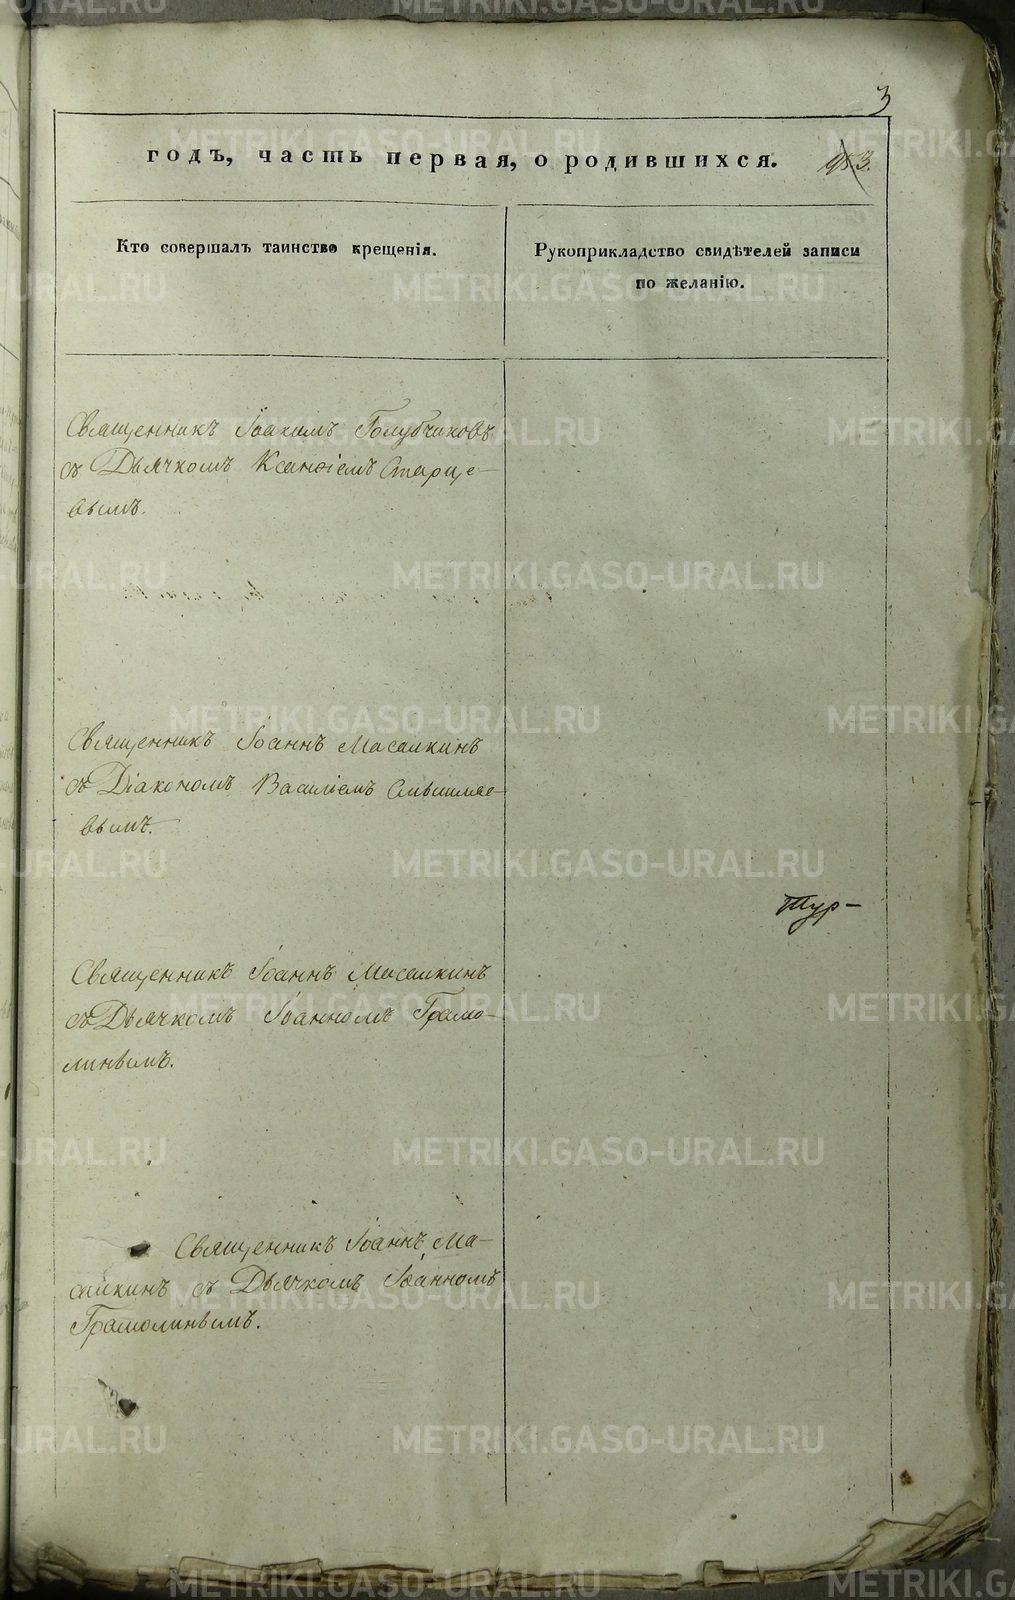 3
годъ, часть первая, о родившихся.
953.
Кто совершалъ таинство крещенія.
Рукоприкладство свидѣтелей записи
по желанію.
Священникъ Іоакимъ Голубчиковъ
съ Дьячкомъ Ксанѳіемъ Старце-
вымъ.
Священникъ Іоаннъ Масалкинъ
съ Діакономъ Василіемъ Смышляе-
вымъ.
Тур-
Священникъ Іоаннъ Масалкинъ
съ Дьячкомъ Іоанномъ Грамо-
линымъ.
Священникъ Іоаннъ Ма-
салкинъ съ Дьячкомъ Іоанномъ
Грамолинымъ.
METRIKI.GASO-URAL.RU